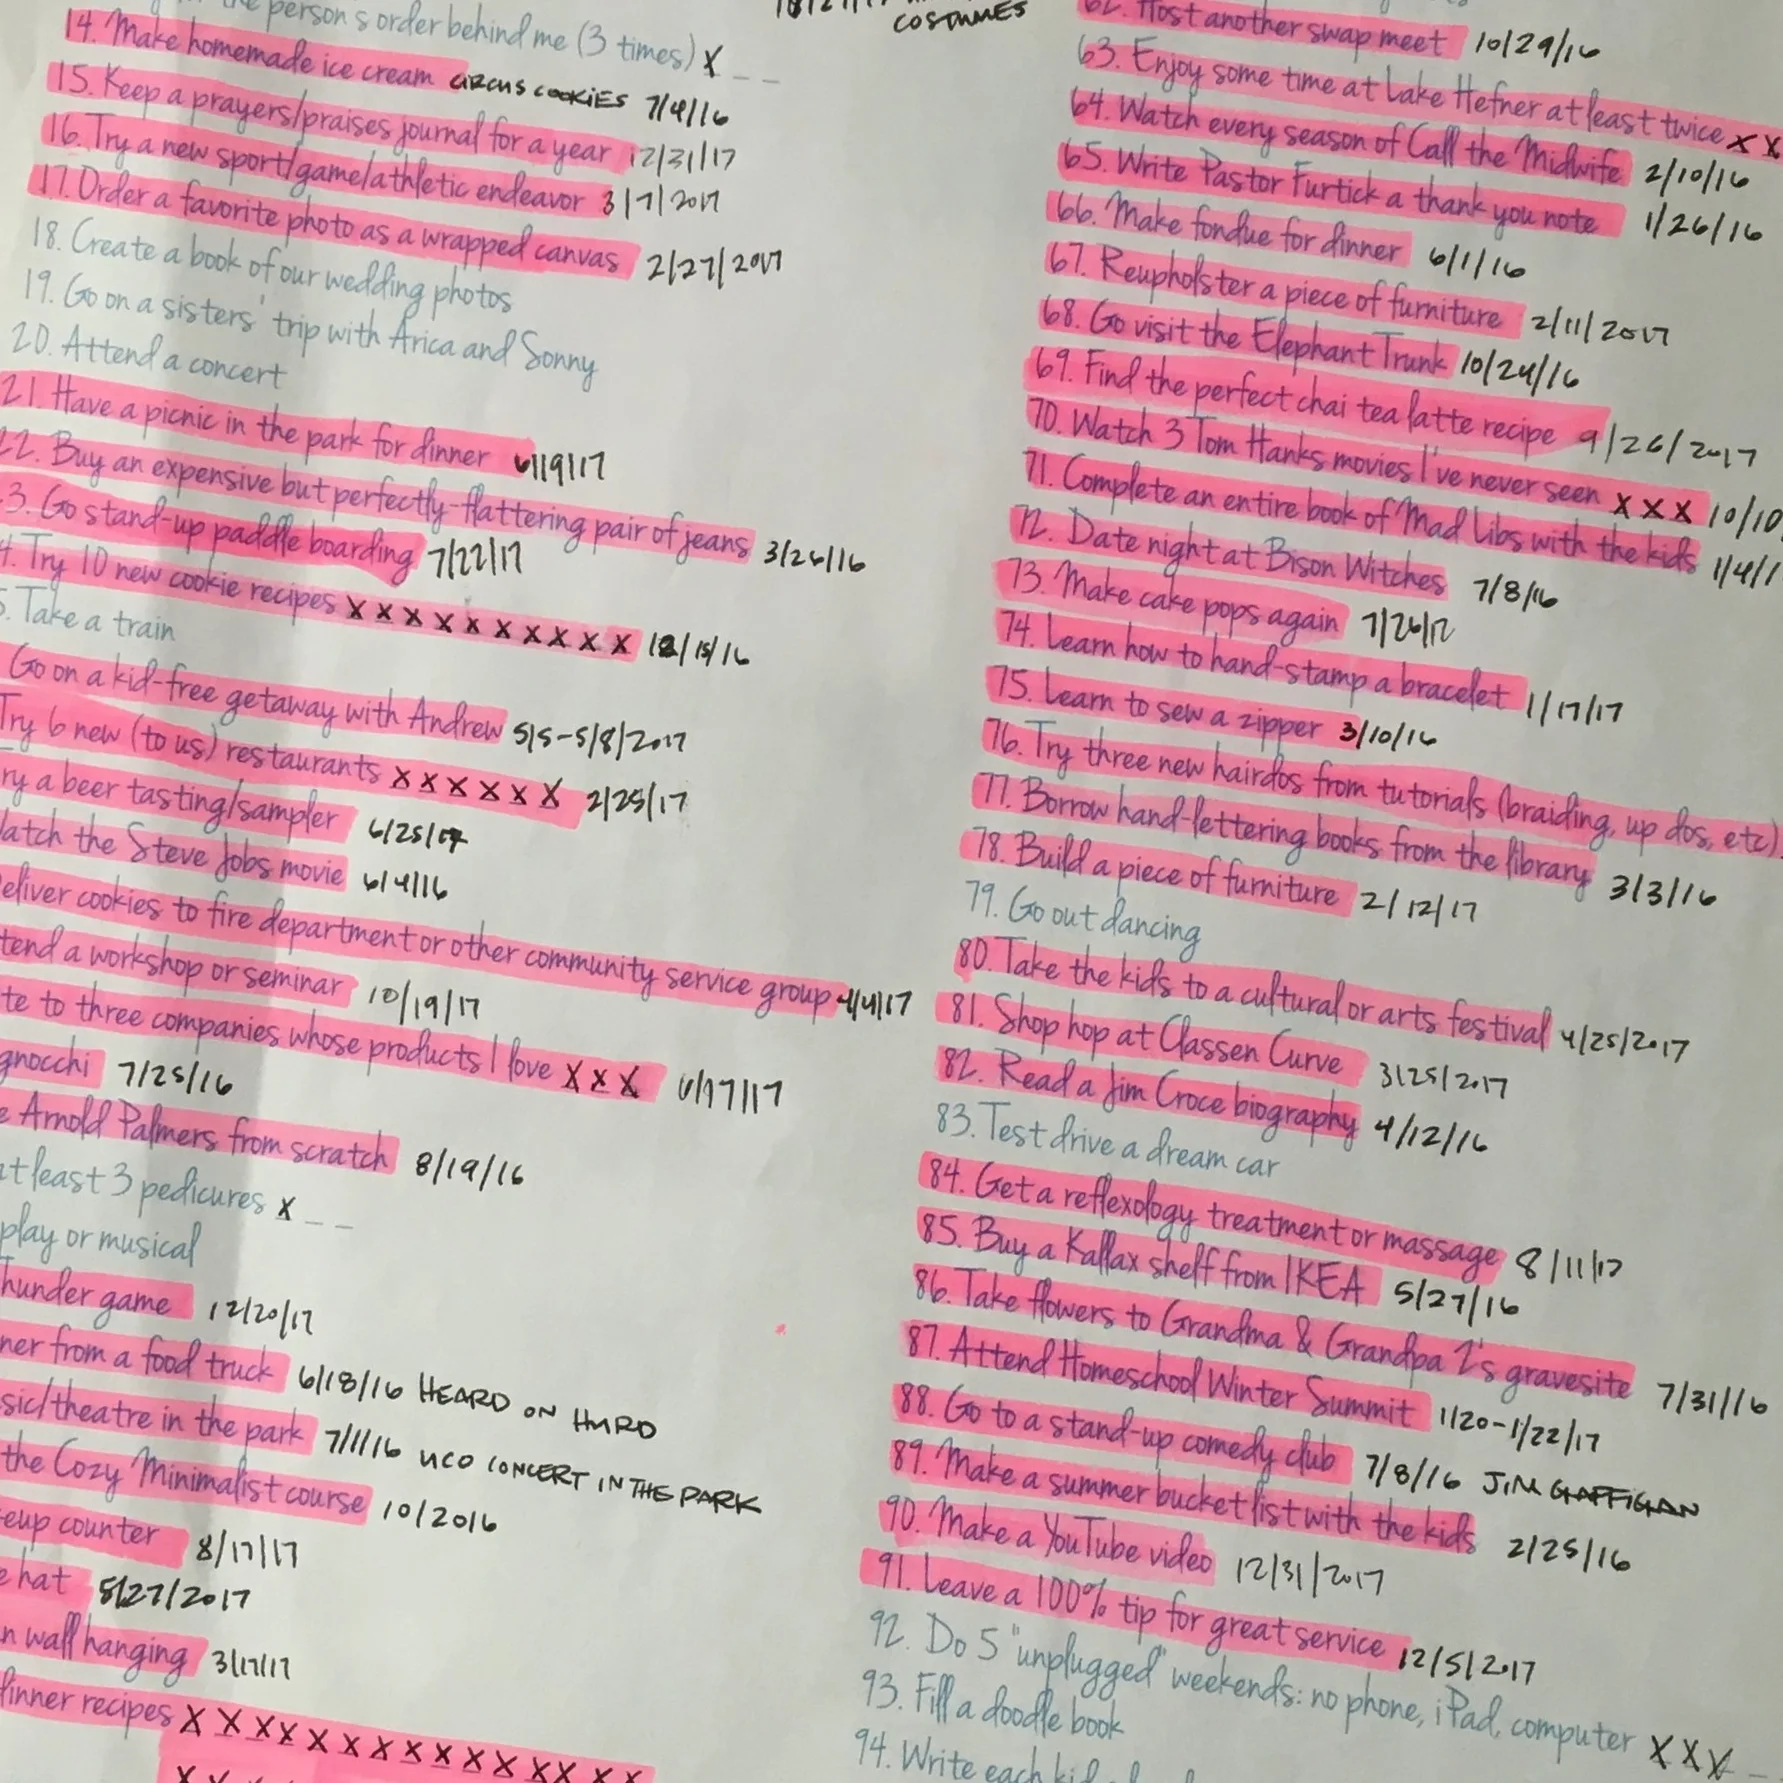 the person's order behind me (3 times) X _ _
14. Make homemade ice cream CIRCUS COOKIES 7/4/16
15. Keep a prayers/praises journal for a year 12/31/17
16. Try a new sport/game/athletic endeavor 3/7/2017
17. Order a favorite photo as a wrapped canvas 2/27/2017
18. Create a book of our wedding photos
19. Go on a sisters' trip with Arica and Sonny
20. Attend a concert
21. Have a picnic in the park for dinner 6/19/17
22. Buy an expensive but perfectly-flattering pair of jeans 3/26/16
3. Go stand-up paddle boarding 7/22/17
4. Try 10 new cookie recipes X X X X X X X X X X 12/15/16
5. Take a train
Go on a kid-free getaway with Andrew 5/5-5/8/2017
Try 6 new (to us) restaurants X X X X X X 2/25/17
ry a beer tasting/sampler 6/25/17
atch the Steve Jobs movie 6/4/16
eliver cookies to fire department or other community service group 4/4/17
tend a workshop or seminar 10/19/17
te to three companies whose products I love X X X 6/17/17
gnocchi 7/25/16
e Arnold Palmers from scratch 8/19/16
at least 3 pedicures X _ _
play or musical
hunder game 12/20/17
ner from a food truck 6/18/16 HEARD ON HURD
sic/theatre in the park 7/1/16 UCO CONCERT IN THE PARK
the Cozy Minimalist course 10/2016
eup counter 8/17/17
e hat 5/27/2017
n wall hanging 3/17/17
dinner recipes X X X X X X X X X X X X X X
X X
COSTUMES
62. Host another swap meet 10/29/16
63. Enjoy some time at Lake Hefner at least twice X X
64. Watch every season of Call the Midwife 2/10/16
65. Write Pastor Furtick a thank you note 1/26/16
66. Make fondue for dinner 6/1/16
67. Reupholster a piece of furniture 2/11/2017
68. Go visit the Elephant Trunk 10/24/16
69. Find the perfect chai tea latte recipe 9/26/2017
70. Watch 3 Tom Hanks movies I've never seen X X X 10/10
71. Complete an entire book of Mad Libs with the kids 1/4/1
72. Date night at Bison Witches 7/8/16
73. Make cake pops again 7/26/17
74. Learn how to hand-stamp a bracelet 1/17/17
75. Learn to sew a zipper 3/10/16
76. Try three new hairdos from tutorials (braiding, up dos, etc)
77. Borrow hand-lettering books from the library 3/3/16
78. Build a piece of furniture 2/12/17
79. Go out dancing
80. Take the kids to a cultural or arts festival 4/25/2017
81. Shop hop at Classen Curve 3/25/2017
82. Read a Jim Croce biography 4/12/16
83. Test drive a dream car
84. Get a reflexology treatment or massage 8/11/17
85. Buy a Kallax shelf from IKEA 5/27/16
86. Take flowers to Grandma & Grandpa Z's gravesite 7/31/16
87. Attend Homeschool Winter Summit 1/20-1/22/17
88. Go to a stand-up comedy club 7/8/16 JIM GAFFIGAN
89. Make a summer bucket list with the kids 2/25/16
90. Make a YouTube video 12/31/2017
91. Leave a 100% tip for great service 12/5/2017
92. Do 5 "unplugged" weekends: no phone, iPad, computer X X X _
93. Fill a doodle book
94. Write each kid